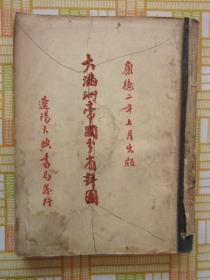 康德二年七月出版
大滿洲帝國分省詳圖
遼陽大興書局發行